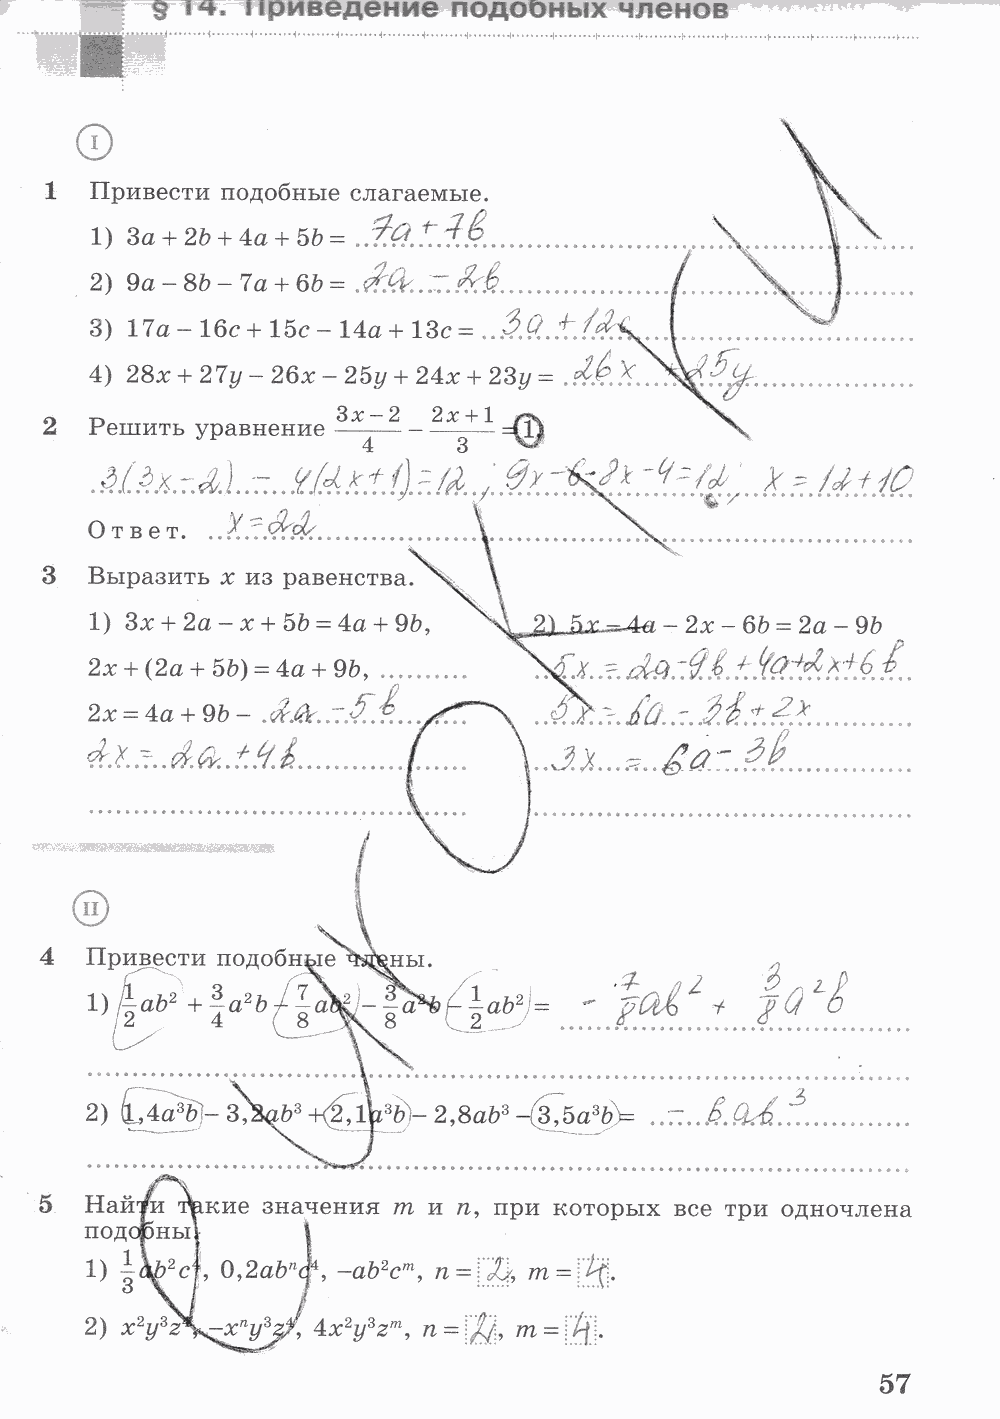 § 14. Приведение подобных членов
I
1 Привести подобные слагаемые.
1) 3a + 2b + 4a + 5b = 7a + 7b
2) 9a − 8b − 7a + 6b = 2a − 2b
3) 17a − 16c + 15c − 14a + 13c = 3a + 12c
4) 28x + 27y − 26x − 25y + 24x + 23y = 26x + 25y
2 Решить уравнение (3x − 2)/4 − (2x + 1)/3 = 1.
3(3x − 2) − 4(2x + 1) = 12; 9x − 6 − 8x − 4 = 12; x = 12 + 10
Ответ. x = 22
3 Выразить x из равенства.
1) 3x + 2a − x + 5b = 4a + 9b,
2x + (2a + 5b) = 4a + 9b,
2x = 4a + 9b − 2a − 5b
2x = 2a + 4b
2) 5x − 4a − 2x − 6b = 2a − 9b
5x = 2a − 9b + 4a + 2x + 6b
5x = 6a − 3b + 2x
3x = 6a − 3b
II
4 Привести подобные члены.
1) 1/2 ab² + 3/4 a²b − 7/8 ab² − 3/8 a²b − 1/2 ab² = − 7/8 ab² + 3/8 a²b
2) 1,4a³b − 3,2ab³ + 2,1a³b − 2,8ab³ − 3,5a³b = − 6ab³
5 Найти такие значения m и n, при которых все три одночлена
подобны.
1) 1/3 ab²c⁴, 0,2abⁿc⁴, −ab²cᵐ, n = 2, m = 4.
2) x²y³z⁴, −xⁿy³z⁴, 4x²y³zᵐ, n = 2, m = 4.
57